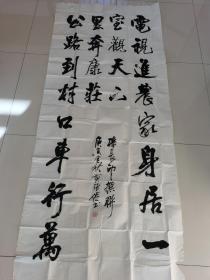 電視進農家身居一
室觀天下
公路到村口車行萬
里奔康莊
撰聯